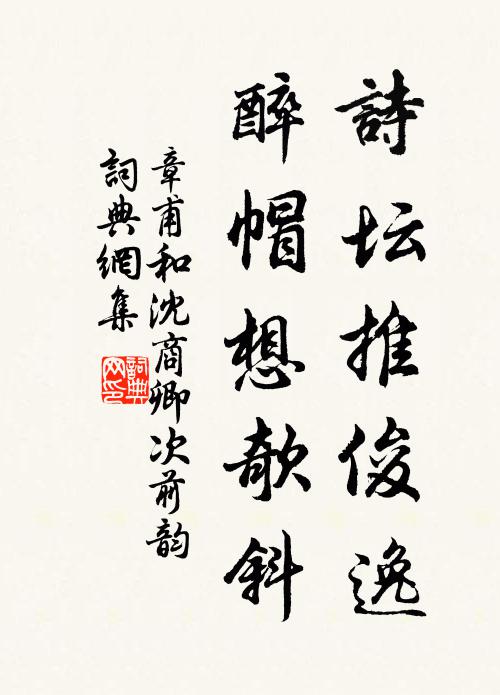 詩坛推俊逸
醉帽想欹斜
章甫和沈商卿次前韵
詞典網集
詞典
网印